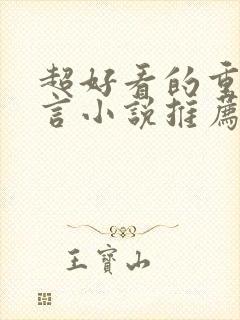 超好看的重
言小說推薦
王寶山